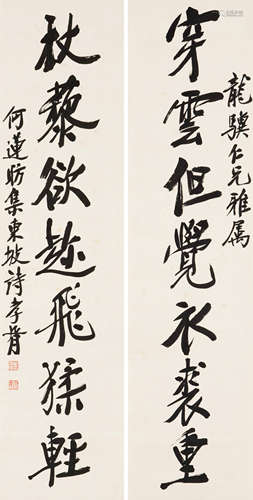 龍驥仁兄雅屬
穿雲但覺衣裘重
杖藜欲趂飛猱輕
何蓮昉集東坡詩 孝胥